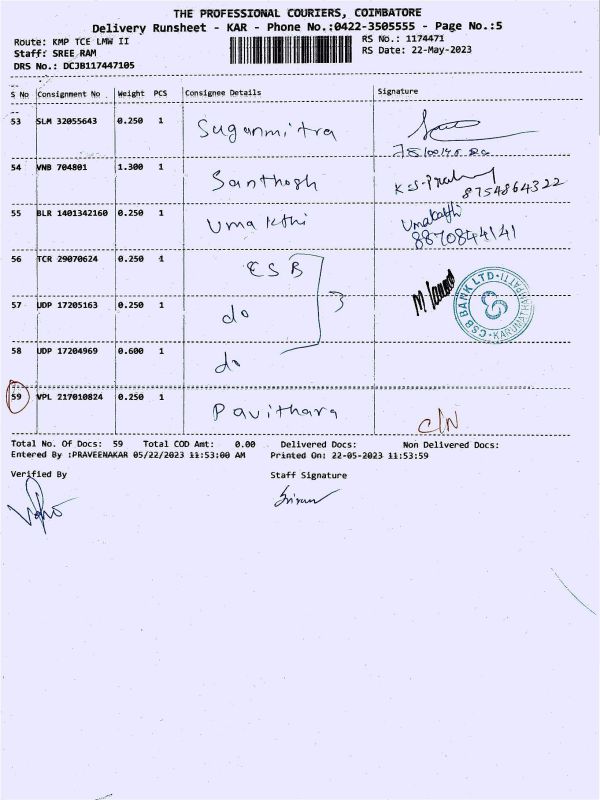 THE PROFESSIONAL COURIERS, COIMBATORE
Delivery Runsheet - KAR - Phone No.:0422-3505555 - Page No.:5
Route: KMP TCE LMW II
RS No.: 1174471
Staff: SREE RAM
RS Date: 22-May-2023
DRS No.: DCJB117447105
S No Consignment No Weight PCS Consignee Details Signature
53 SLM 32055643 0.250 1 Suganmitra
54 VNB 704801 1.300 1 Santhosh
8754864322
55 BLR 1401342160 0.250 1 Umakthi Umakathi
8870844141
56 TCR 29070624 0.250 1 CSB
CSB BANK LTD
57 UDP 17205163 0.250 1 do
58 UDP 17204969 0.600 1 do
59 VPL 217010824 0.250 1 Pavithara C/N
Total No. Of Docs: 59 Total COD Amt: 0.00 Delivered Docs: Non Delivered Docs:
Entered By :PRAVEENAKAR 05/22/2023 11:53:00 AM Printed On: 22-05-2023 11:53:59
Verified By Staff Signature